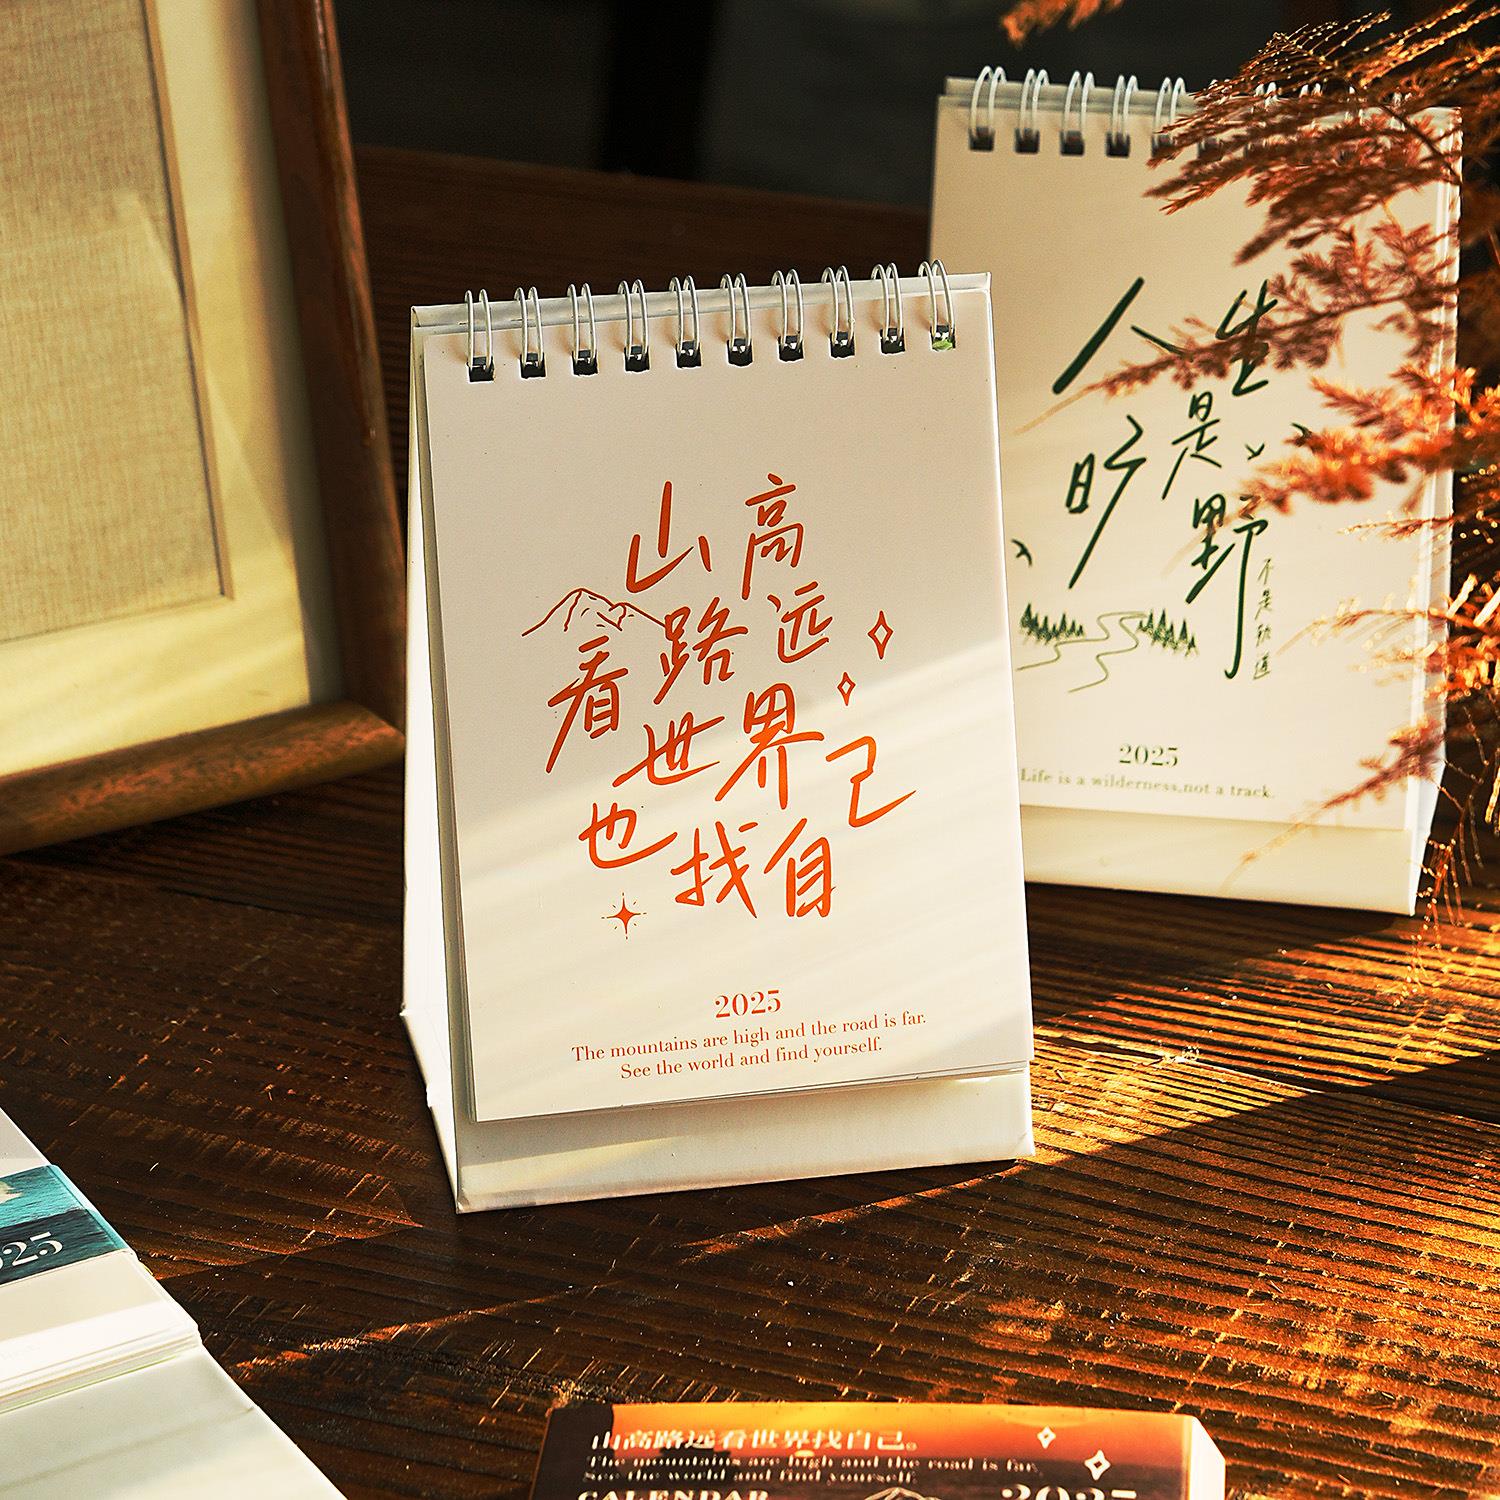 山高
路远
看世界
也找自己
2025
The mountains are high and the road is far.
See the world and find yourself.
人生
是
旷野
不是轨道
2025
Life is a wilderness,not a track.
025
山高路远看世界找自己。
The mountains are high and the road is far.
See the world and find yourself.
CALENDAR
2025